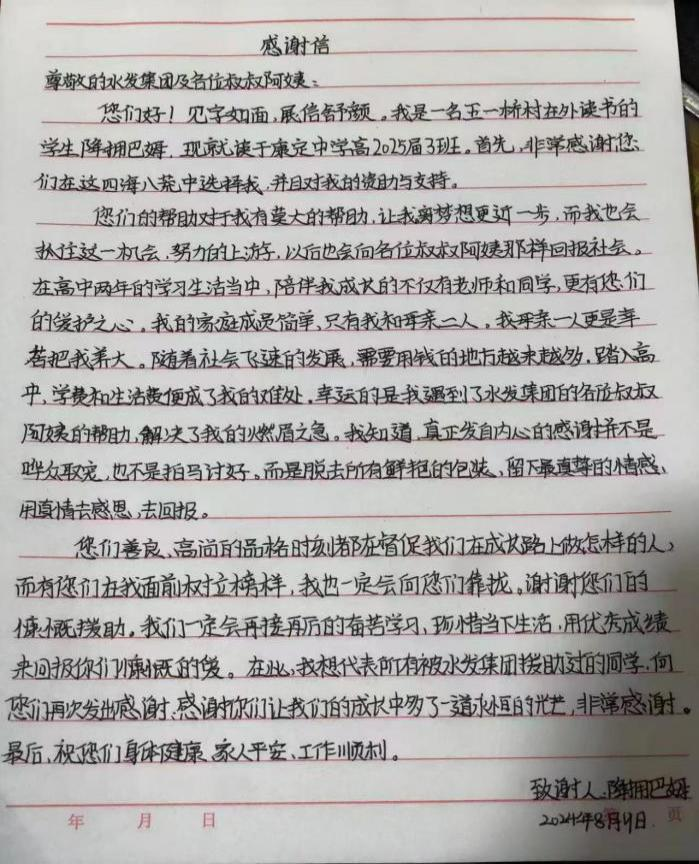 感谢信
尊敬的水发集团及各位叔叔阿姨：
您们好！见字如面，展信舒颜。我是一名五一桥村在外读书的
学生降拥巴姆，现就读于康定中学高2025届3班。首先，非常感谢您
们在这四海八荒中选择我，并且对我的资助与支持。
您们的帮助对于我有莫大的帮助，让我离梦想更近一步，而我也会
抓住这一机会，努力的上游，以后也会向各位叔叔阿姨那样回报社会。
在高中两年的学习生活当中，陪伴我成长的不仅有老师和同学，更有您们
的爱护之心。我的家庭成员简单，只有我和母亲二人。我母亲一人更是辛
苦把我养大。随着社会飞速的发展，需要用钱的地方越来越多，踏入高
中，学费和生活费便成了我的难处。幸运的是我遇到了水发集团的各位叔叔
阿姨的帮助，解决了我的燃眉之急。我知道，真正发自内心的感谢并不是
哗众取宠，也不是拍马讨好。而是脱去所有鲜艳的包装，留下最真挚的情感，
用真情去感恩，去回报。
您们善良、高尚的品格时刻都在督促我们在成长路上做怎样的人，
而有您们在我面前树立榜样，我也一定会向您们靠拢。谢谢您们的
慷慨援助。我们一定会再接再厉的奋苦学习，珍惜当下生活，用优秀成绩
来回报你们慷慨的爱。在此，我想代表所有被水发集团援助过的同学，向
您们再次发出感谢，感谢你们让我们的成长中多了一道永恒的光芒，非常感谢。
最后，祝您们身体健康、家人平安、工作顺利。
致谢人：降拥巴姆
2024年8月 日
年 月 日 页